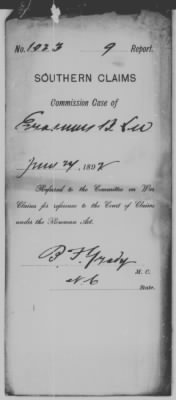 No. 1023 9 Report.
SOUTHERN CLAIMS
Commission Case of
Erasmus B. Lee
June 24, 1892
Referred to the Committee on War
Claims for reference to the Court of Claims
under the Bowman Act.
B. F. Grady
M. C.
N C
State.